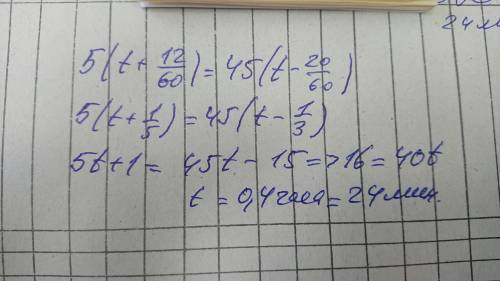 24 м
5(t+12/60)=45(t-20/60)
5(t+1/5)=45(t-1/3)
5t+1= 45t-15=>16=40t
t=0,4часа=24мин.